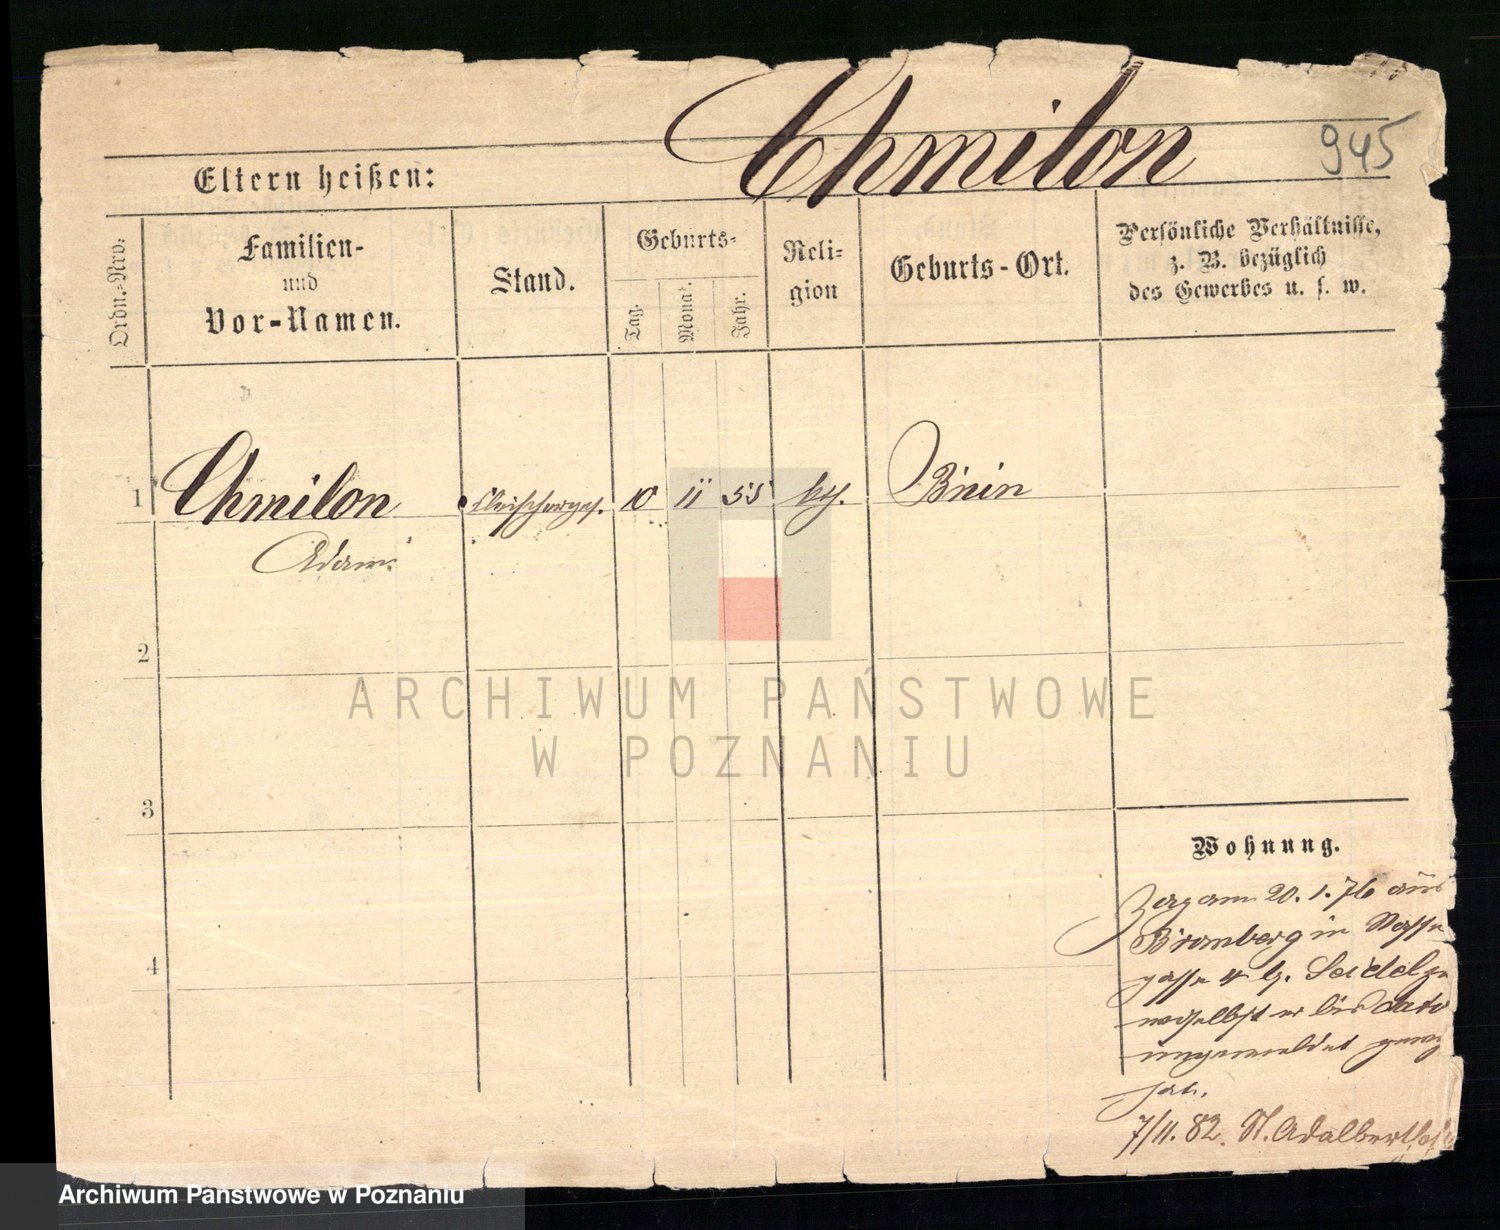 Chmilon
945
Eltern heißen:
Ordn.-Nro.
Familien-
und
Vor-Namen.
Stand.
Geburts-
Tag.
Monat.
Jahr.
Reli-
gion
Geburts-Ort.
Persönliche Verhältnisse,
z. B. bezüglich
des Gewerbes u. s. w.
1 Chmilon Fleischerges. 10 11 55 kth. Bnin
Adam
2
3
4
Wohnung.
Zog am 20.1.76 aus
Bromberg in
gasse 4 b. Seidel
woselbst er bis dato
ungemeldet
7/11. 82. St. Adalbert
ARCHIWUM PAŃSTWOWE
W POZNANIU
Archiwum Państwowe w Poznaniu